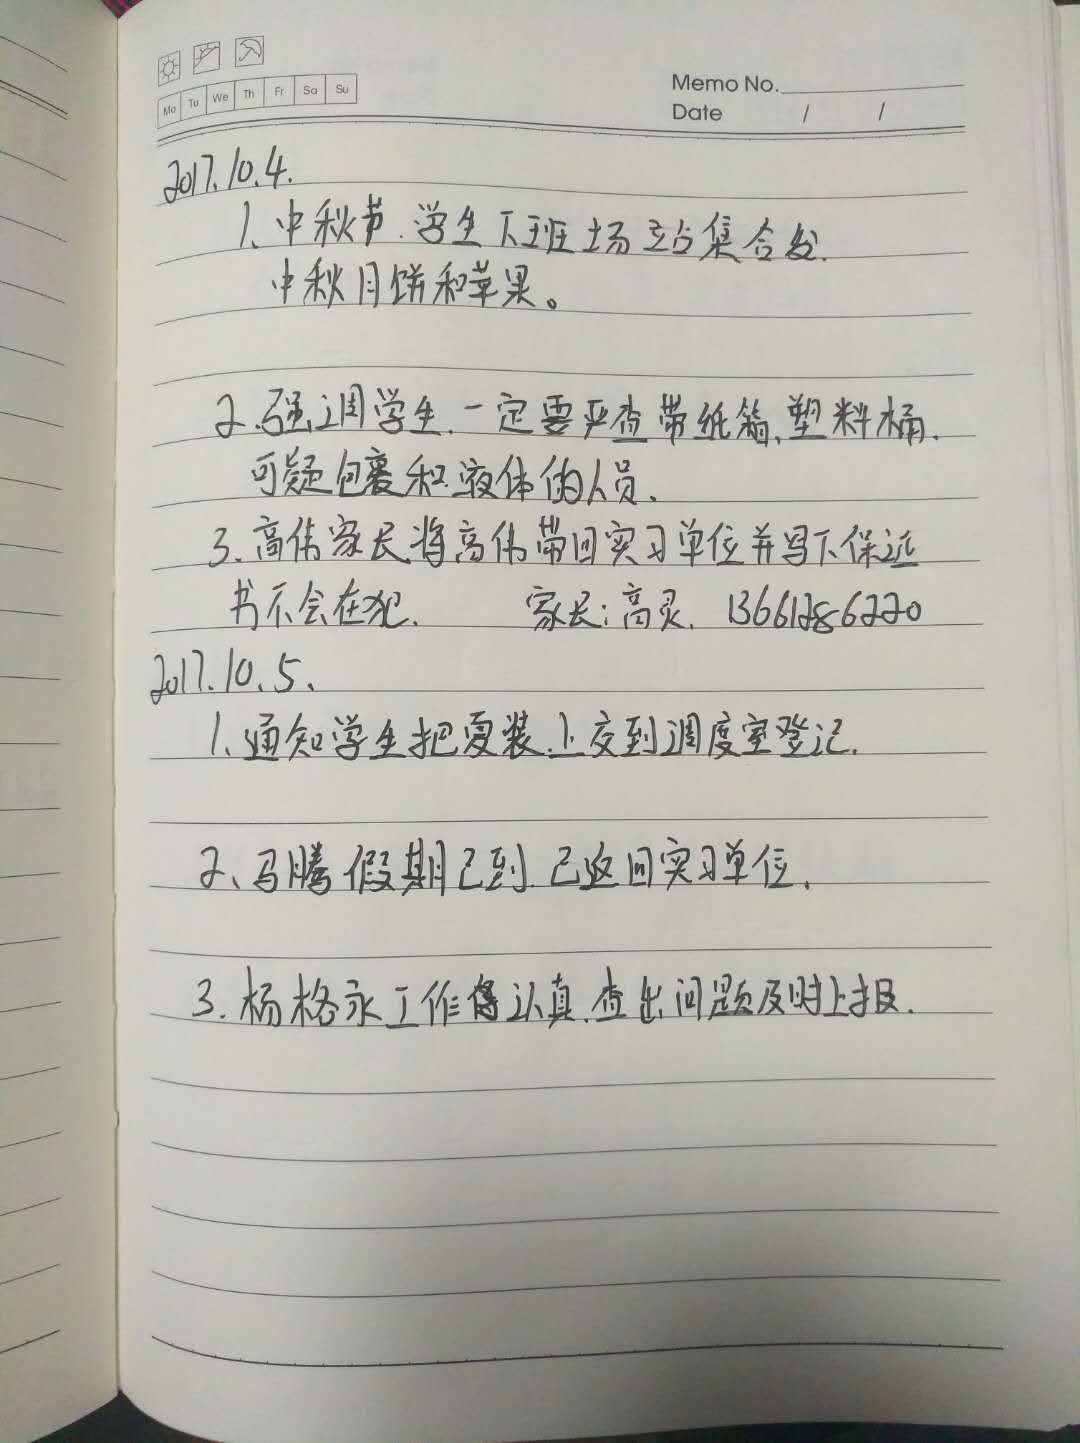 Mo Tu We Th Fr Sa Su
Memo No.
Date / /
2017.10.4.
1、中秋节.学生下班场站集合发.
中秋月饼和苹果。
2.强调学生.一定要严查带纸箱、塑料桶.
可疑包裹和液体的人员.
3.高伟家长将高伟带回实习单位并写下保证
书不会在犯. 家长:高灵. 13661286220
2017.10.5、
1、通知学生把夏装上交到调度室登记.
2、马腾假期已到.已返回实习单位.
3.杨格永工作得认真.查出问题及时上报.